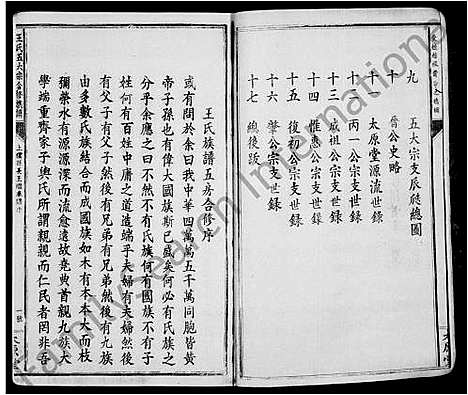 九 五大宗支辰殿總圖
十 晉公史略
十一 太原堂源流世錄
十二 丙一公宗支世錄
十三 成祖公宗支世錄
十四 惟惠公宗支世錄
十五 復初公宗支世錄
十六 肇公宗支世錄
十七 總後跋
太原堂
王氏五大宗合修族譜
一號
太原堂
王氏族譜五房合修序
或有問於余曰我中華四萬萬五千萬同胞皆黃
帝子孫也有偉大國族斯已盛矣何必有氏族之
分乎余應之曰不然不有氏族何有國族不有百
姓何有百姓中庸之道造端乎夫婦有夫婦然後
有父子有父子然後有兄弟有兄弟然後有氏族
由多數氏族結合而成國族如木有本本大而枝
彌榮水有源源深而流愈遠故堯典首親九族大
學端重齊家子輿氏所謂親親而仁民者罔非吾
FamilySearch International